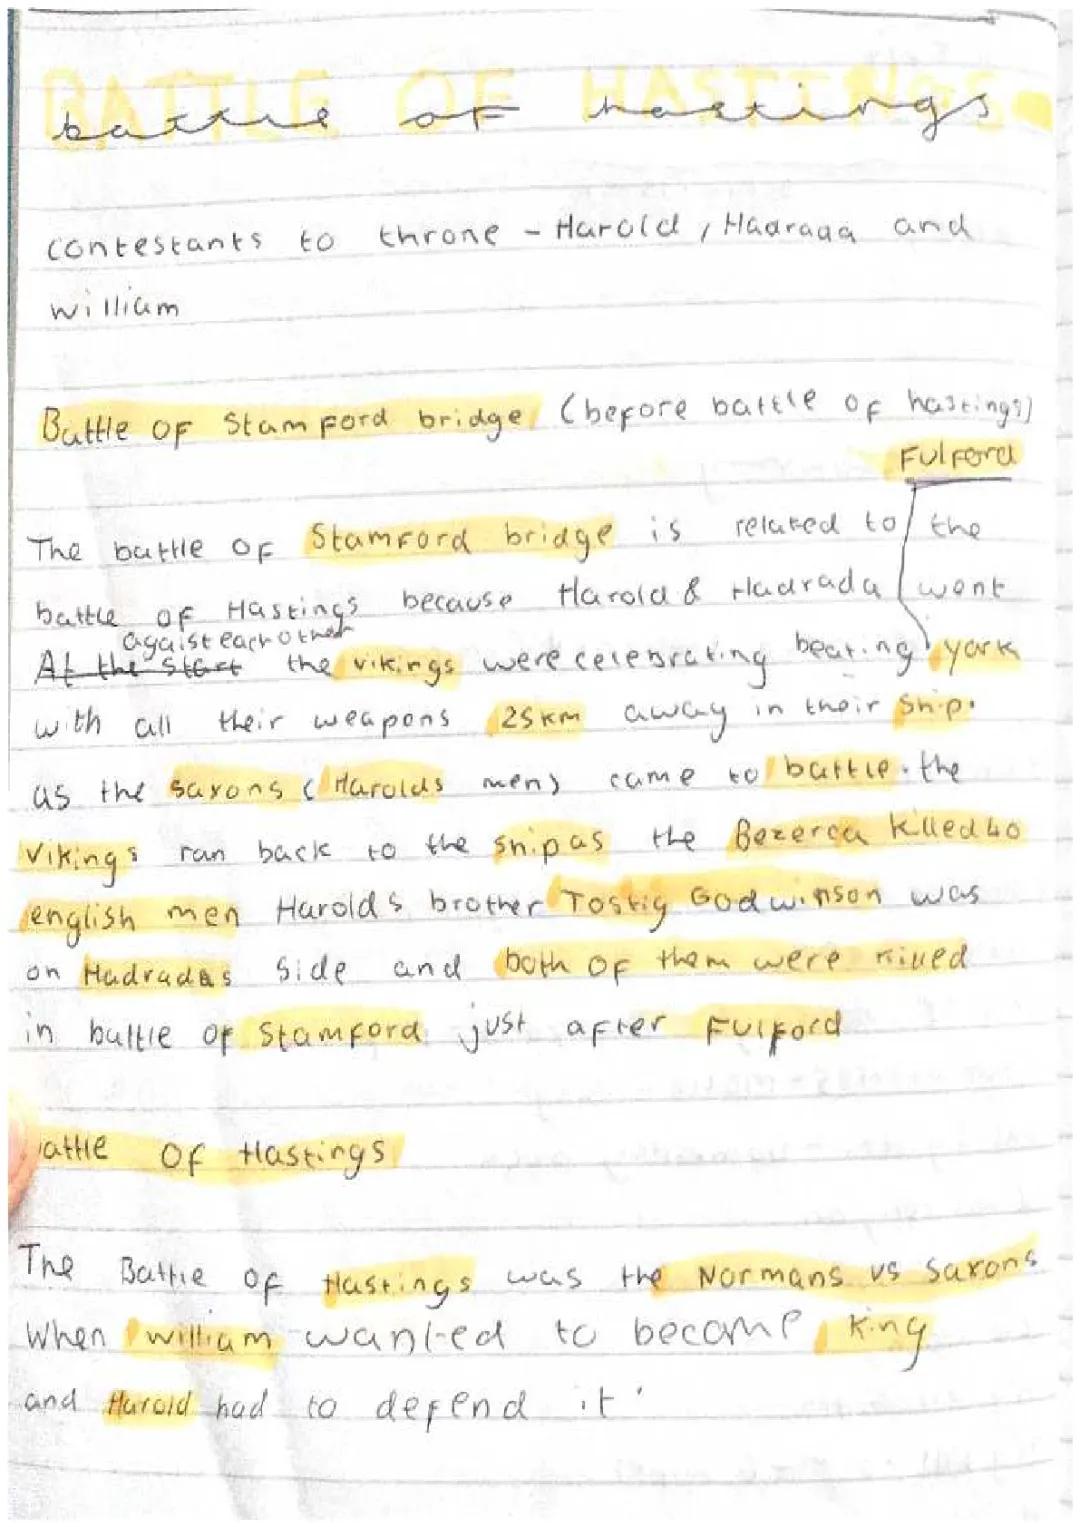 BATTLE OF HASTINGS
battle of hastings
contestants to throne - Harold, Hadrada and
william
Battle of Stamford bridge (before battle of hastings)
Fulford
The battle of Stamford bridge is related to the
battle of Hastings because Harold & Hadrada went
agaist each other
At the start the vikings were celebrating beating york
with all their weapons 25km away in their ship.
as the saxons (Harolds men) came to battle. the
vikings ran back to the ship as the Bezerca killed 40
english men Harolds brother Tostig Godwinson was
on Hadradas side and both of them were killed
in battle of Stamford just after Fulford
attle of Hastings
The Battle of Hastings was the Normans vs Saxons
When william wanted to become king
and Harold had to defend it